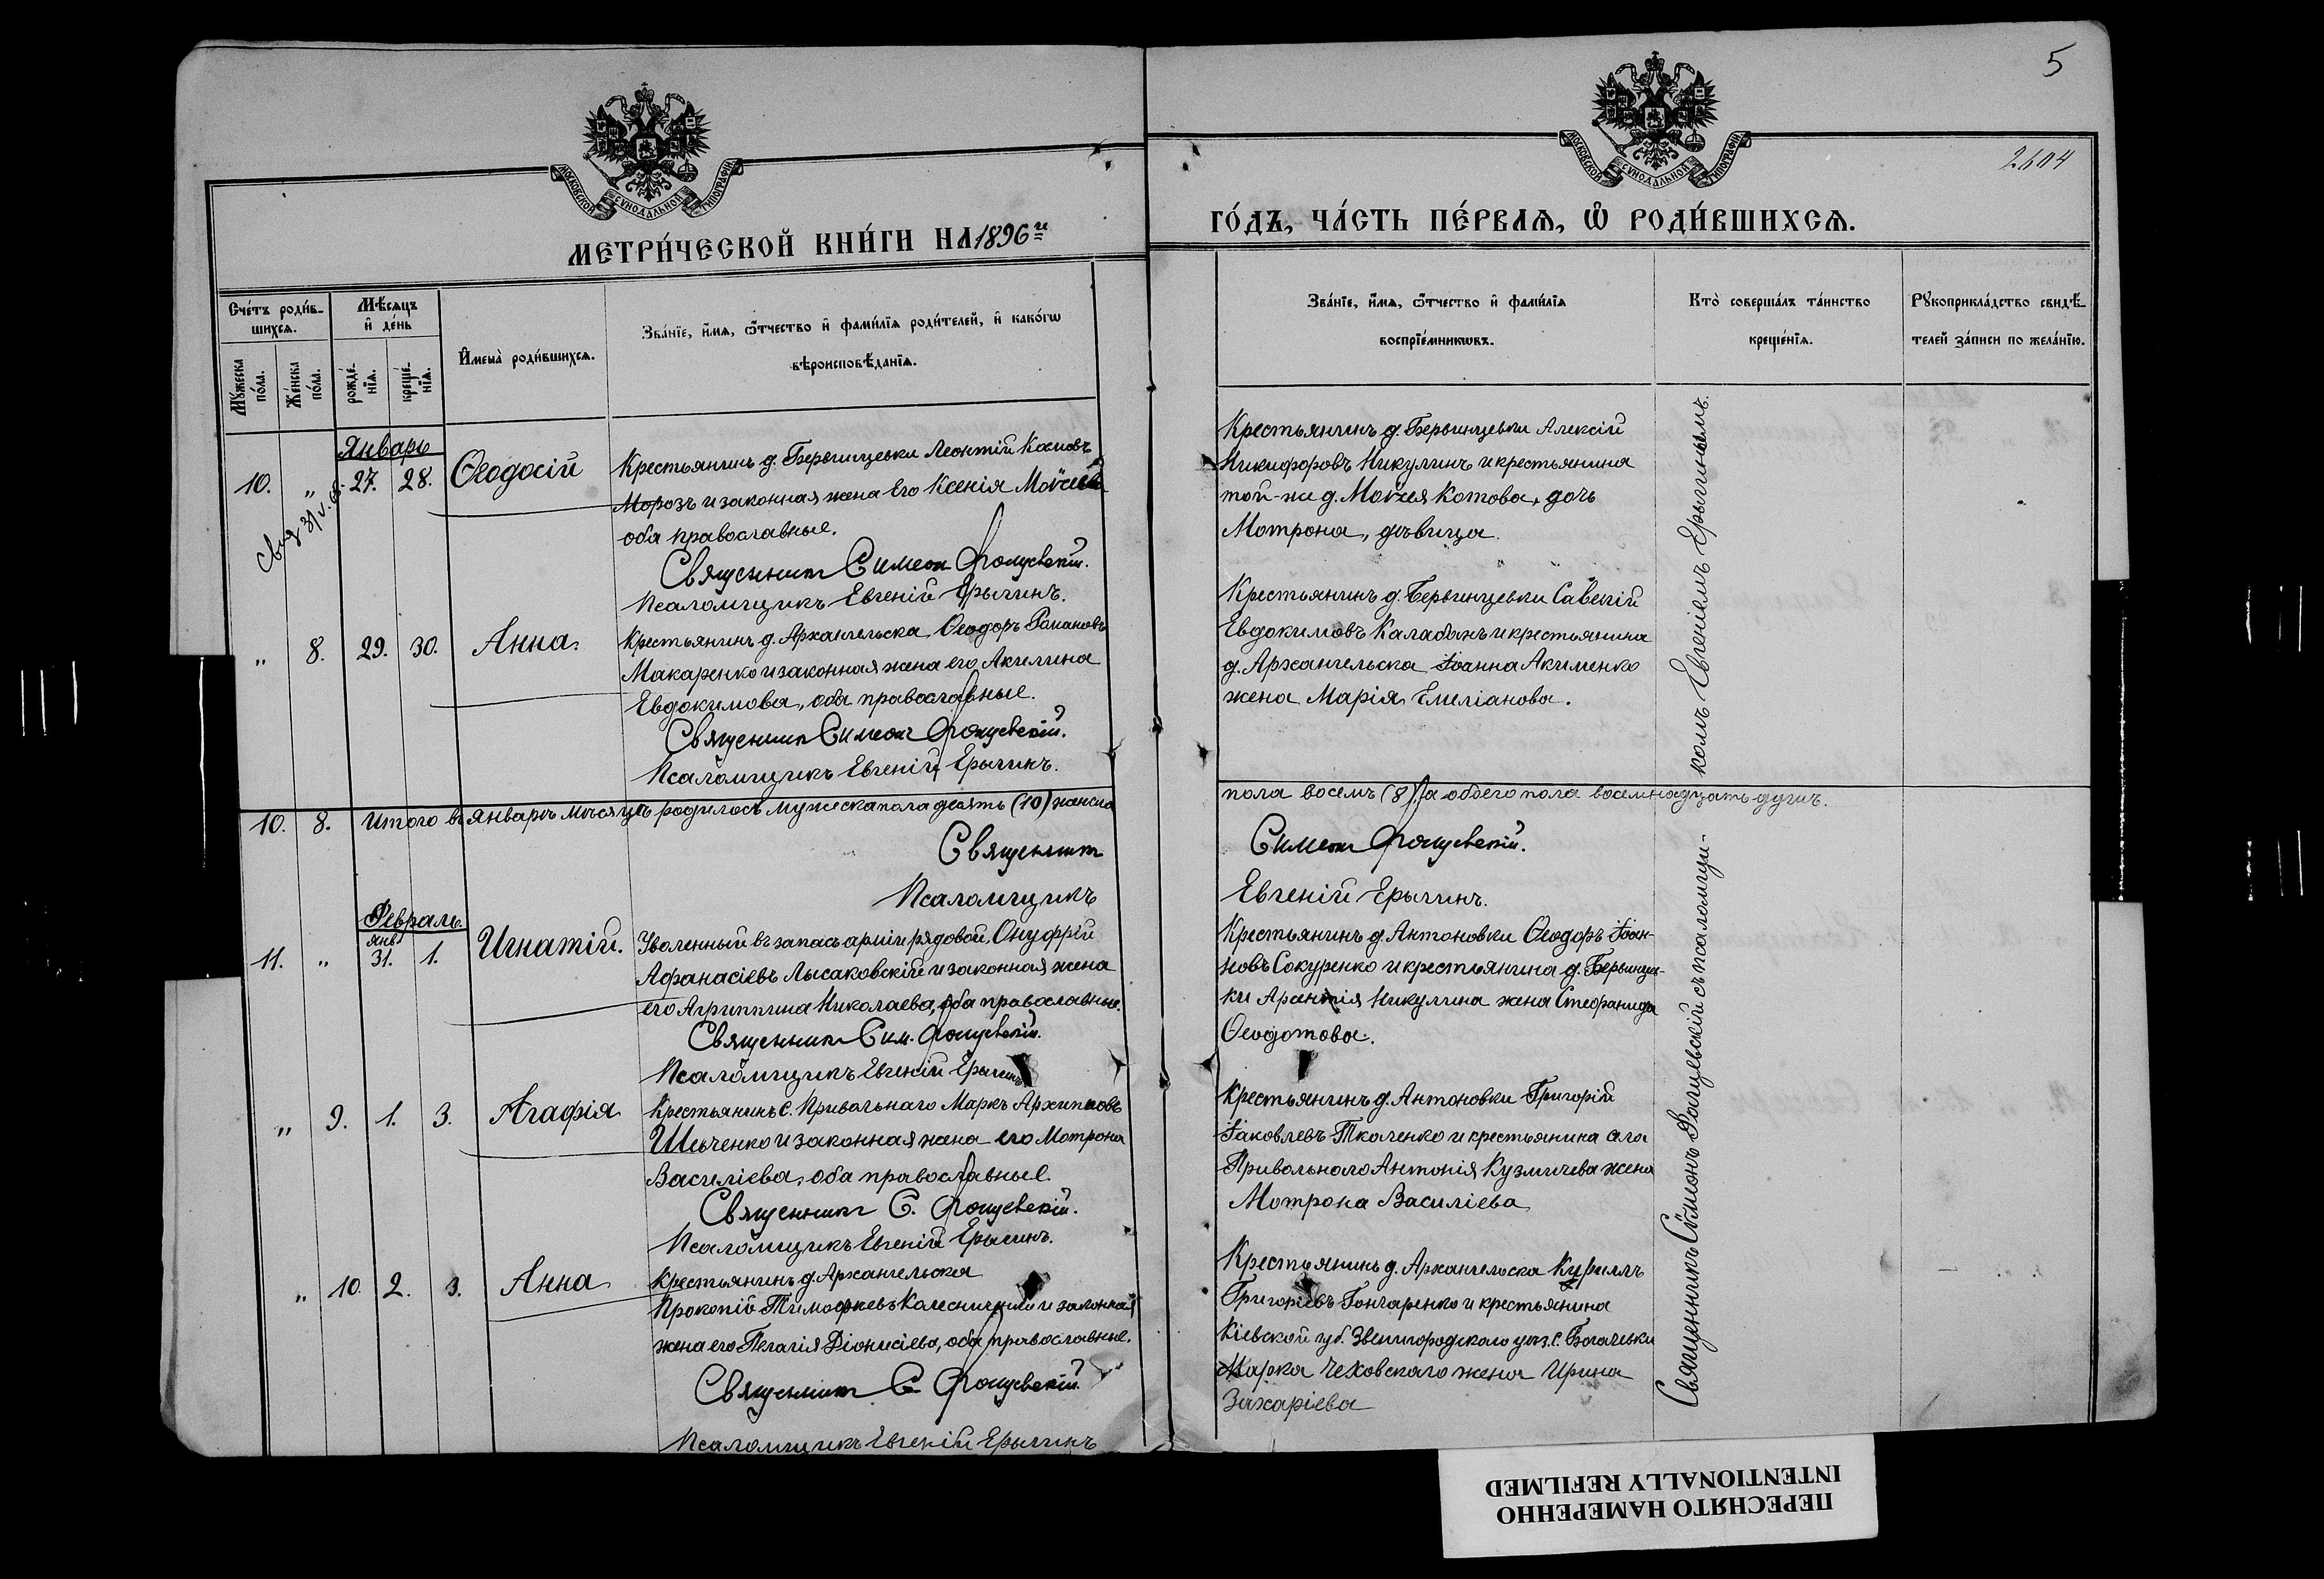 5
2604
МОСКОВСКОЙ СѴНОДАЛЬНОЙ ТИПОГРАФІИ
МОСКОВСКОЙ СѴНОДАЛЬНОЙ ТИПОГРАФІИ
МЕТРИ́ЧЕСКОЙ КНИ́ГИ НА 1896й
ГО́ДЪ, ЧА́СТЬ ПЕ́РВАѦ, Ѡ҆ РОДИ́ВШИХСѦ.
Сче́тъ роди́в-
шихсѧ.
Мꙋ́жеска по́ла.
Же́нска по́ла.
Мѣ́сѧцъ
и҆ де́нь
рожде́-
нїѧ.
креще́-
нїѧ.
И҆мена̀ роди́вшихсѧ.
Зва́нїе, и҆́мѧ, ѻ҆́тчество и҆ фами́лїѧ роди́телей, и҆ како́гѡ
вѣроисповѣ́данїѧ.
Зва́нїе, и҆́мѧ, ѻ҆́тчество и҆ фами́лїѧ
воспрїе́мникѡвъ.
Кто̀ соверша́лъ та́инство
креще́нїѧ.
Рꙋкоприкла́дство свидѣ́-
телей за́писи по жела́нїю.
Январь
10. " 27. 28. Ѳеодосій
Крестьянинъ д. Бервицевки Леонтій
Морозъ и законная жена его Ксенія Моѵсеева
оба православные.
Священникъ Симеон
Псаломщикъ Евгеній Ерыгинъ.
Крестьянинъ д. Бервицевки Алексій
Никифоровъ Никулинъ и крестьянина
той-же д. Моѵсея Котова, дочь
Мотрона, дѣвица.
" 8. 29. 30. Анна.
Крестьянинъ д. Архангельска Ѳеодоръ Романовъ
Макаренко и законная жена его Акилина
Евдокимова, оба православные.
Священникъ Симеон
Псаломщикъ Евгеній Ерыгинъ.
Крестьянинъ д. Бервинцевки Савелій
Евдокимовъ Калабанъ и крестьянина
д. Архангельска Іоанна Акименко
жена Марія Емеліанова.
10. 8. Итого въ Январѣ мѣсяцѣ родилось мужеска пола десять (10) женска
пола восемь (8), а обоего пола восемнадцать душъ.
Священникъ
Симеон
Псаломщикъ
Евгеній Ерыгинъ.
Февраль
янв.
11. " 31. 1. Игнатій.
Уволенный въ запасъ арміи рядовой, Онуфрій
Афанасіевъ Лысаковскій и законная жена
его Агриппина Николаева, оба православные.
Священникъ Сим.
Псаломщикъ Евгеній Ерыгинъ
Крестьянинъ д. Антоновки Ѳеодоръ Іоан-
новъ Сокуренко и крестьянина д. Бервицев-
ки Арсенія Никулина жена Стефанида
Ѳеодотова.
" 9. 1. 3. Агафія
Крестьянинъ с. Привольнаго Маркъ Архиповъ
Шевченко и законная жена его Мотрона
Василіева, оба православные.
Священникъ С.
Псаломщикъ Евгеній Ерыгинъ.
Крестьянинъ д. Антоновки Григорій
Іаковлевъ Ткаленко и крестьянина села
Привольнаго Антонія Кузмичева жена
Мотрона Василіева
" 10. 2. 3. Анна
Крестьянинъ д. Архангельска
Прокопій Тимофеевъ Колесниченко и законная
жена его Пелагія Діонисіева, оба православные.
Священникъ С.
Псаломщикъ Евгеній Ерыгинъ
Крестьянинъ д. Архангельска Кѵриллъ
Григоріевъ Гончаренко и крестьянина
Кіевской губ. Звенигородскаго уез. с. Богачевки
Марка Чеховскаго жена Ирина
Захаріева
Священникъ Сѵмеонъ съ псаломщи-
комъ Евгеніемъ Ерыгинымъ.
ПЕРЕСНЯТО НАМЕРЕННО
INTENTIONALLY REFILMED